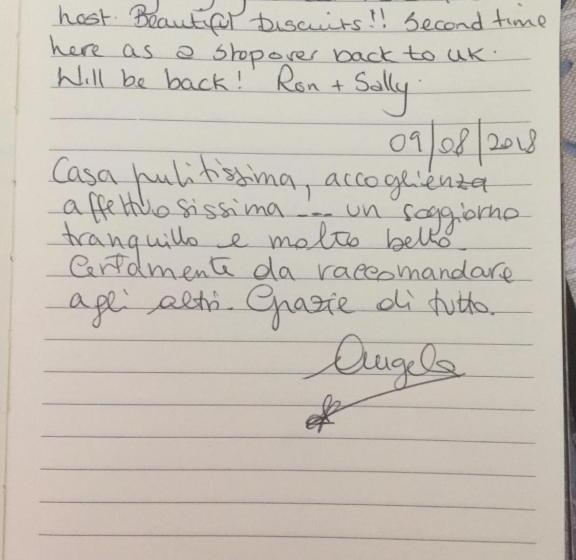 host. Beautiful biscuits!! Second time
here as a stopover back to UK.
Will be back! Ron + Sally.
09/08/2018
Casa pulitissima, accoglienza
affettuosissima --- un soggiorno
tranquillo e molto bello.
Certamente da raccomandare
agli altri. Grazie di tutto.
Angela